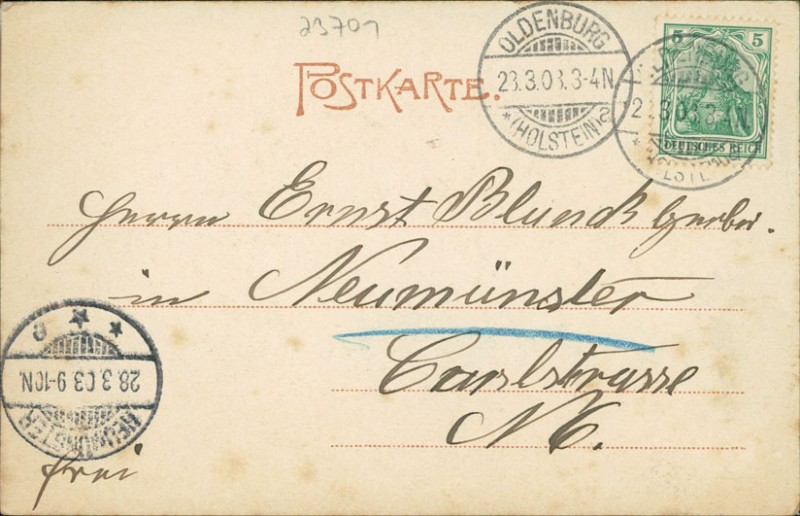 23701
POSTKARTE.
OLDENBURG
23.3.03.3-4N
*(HOLSTEIN)
5 5
DEUTSCHES REICH
Herrn Ernst Blunck Gerber.
in Neumünster
Carlstrasse
28.3.03 9-10N.
NEUMÜNSTER
frei